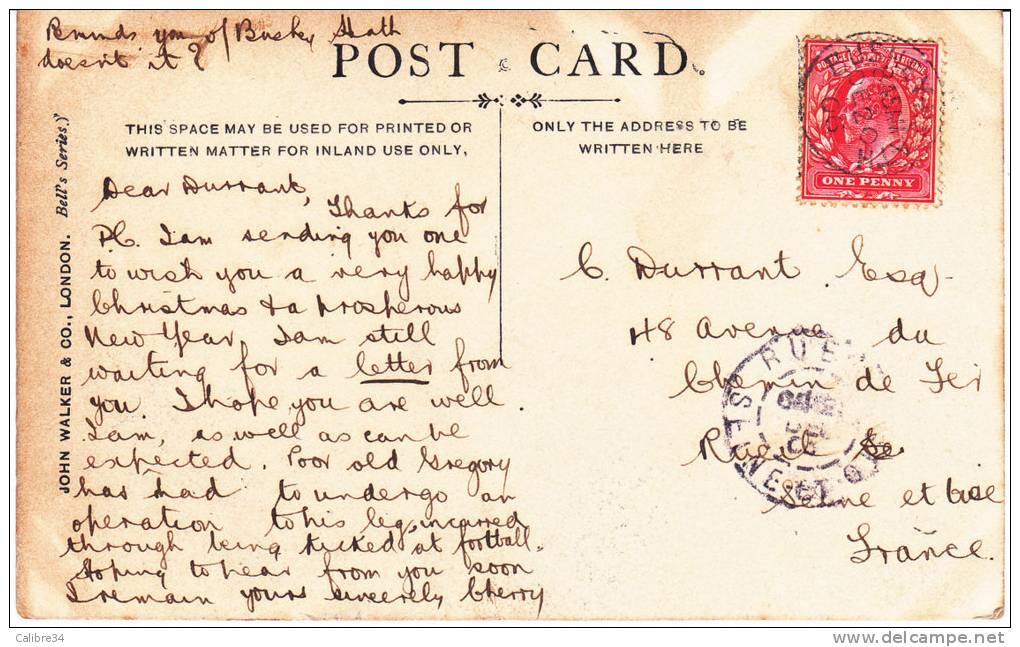 Reminds you of Bushey Heath
doesnt it?
POST CARD.
THIS SPACE MAY BE USED FOR PRINTED OR
WRITTEN MATTER FOR INLAND USE ONLY,
ONLY THE ADDRESS TO BE
WRITTEN HERE
JOHN WALKER & CO., LONDON. Bell's Series.)
ONE PENNY
Dear Durrant,
Thanks for
P.C. I am sending you one
to wish you a very happy
Christmas & a prosperous
New Year, I am still
waiting for a letter from
you. I hope you are well
I am, as well as can be
expected. Poor old Gregory
has had to undergo an
operation to his leg, incurred
through being kicked at football.
Hoping to hear from you soon
I remain yours sincerely Cherry
C. Durrant Esq
48 Avenue du
Chemin de Fer
Rueil
Seine et Oise
France.
RUEIL
SEINE-ET-O
Calibre34
delcampe.net